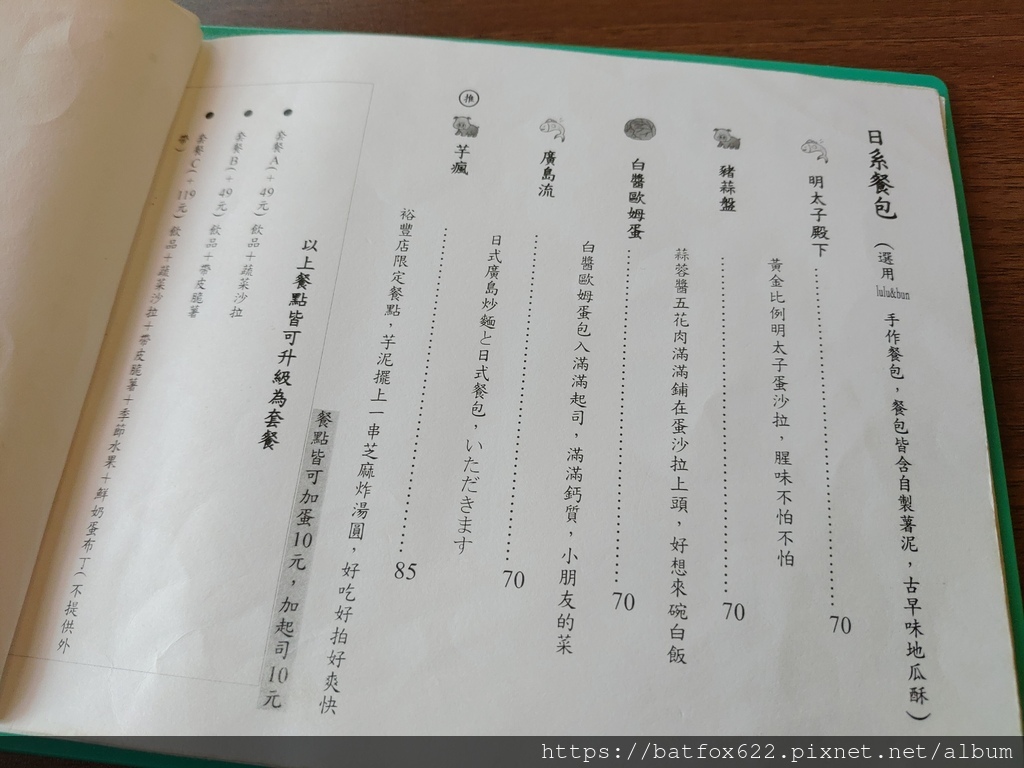 日系餐包
(選用 lulu&bun 手作餐包，餐包皆含自製薯泥，古早味地瓜酥)
明太子殿下 70
黃金比例明太子蛋沙拉，腥味不怕不怕
豬蒜盤 70
蒜蓉醬五花肉滿滿鋪在蛋沙拉上頭，好想來碗白飯
白醬歐姆蛋 70
白醬歐姆蛋包入滿滿起司，滿滿鈣質，小朋友的菜
廣島流 70
日式廣島炒麵と日式餐包，いただきます
推
芋瘋 85
裕豐店限定餐點，芋泥擺上一串芝麻炸湯圓，好吃好拍好爽快
餐點皆可加蛋10元，加起司10元
以上餐點皆可升級為套餐
套餐A(+49元)飲品+蔬菜沙拉
套餐B(+49元)飲品+帶皮脆薯
套餐C(+119元)飲品+蔬菜沙拉+帶皮脆薯+季節水果+鮮奶蛋布丁(不提供外
帶)
https://batfox622.pixnet.net/album